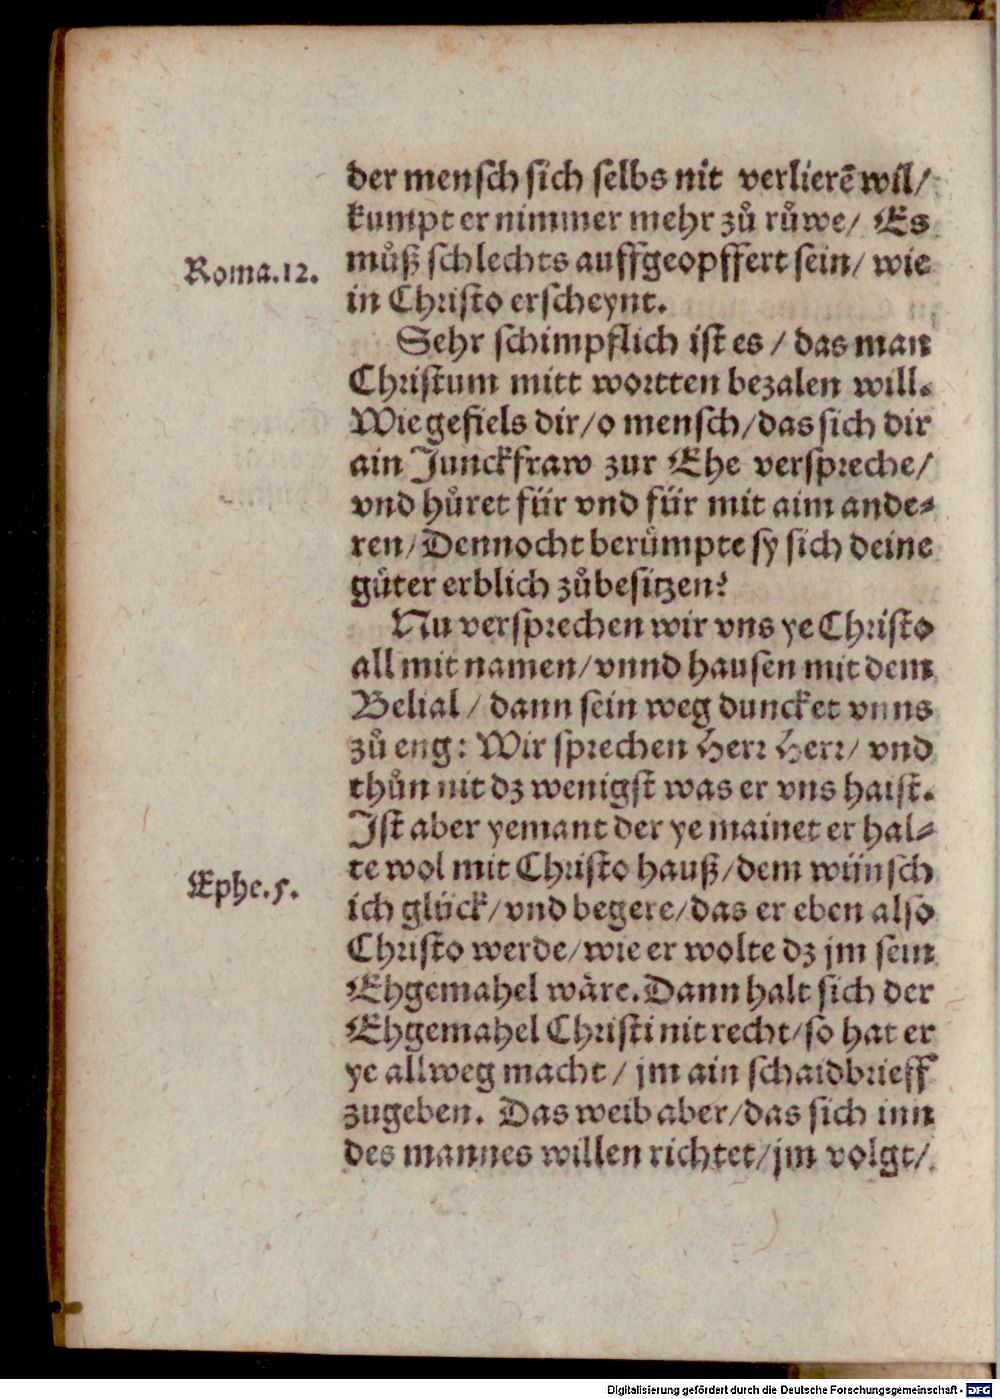 der mensch sich selbs nit verlierẽ wil/
kumpt er nimmer mehr zů růwe/ Es
Roma.12.
můß schlechts auffgeopffert sein/ wie
in Christo erscheynt.
Sehr schimpflich ist es / das man
Christum mitt wortten bezalen will.
Wie gefiels dir/o mensch/das sich dir
ain Junckfraw zur Ehe verspreche/
vnd hůret für vnd für mit aim ande⸗
ren/Dennocht berůmpte sy sich deine
güter erblich zůbesitzen?
Nu versprechen wir vns ye Christo
all mit namen/vnnd hausen mit dem
Belial / dann sein weg duncket vnns
zů eng: Wir sprechen Herr Herr/ vnd
thůn nit dz wenigst was er vns haist.
Jst aber yemant der ye mainet er hal⸗
te wol mit Christo hauß/dem wünsch
Ephe.5.
ich glück/vnd begere/das er eben also
Christo werde/wie er wolte dz jm sein
Ehgemahel wäre.Dann halt sich der
Ehgemahel Christi nit recht/so hat er
ye allweg macht / jm ain schaidbrieff
zugeben. Das weib aber/das sich inn
des mannes willen richtet/jm volgt/
Digitalisierung gefördert durch die Deutsche Forschungsgemeinschaft - DFG